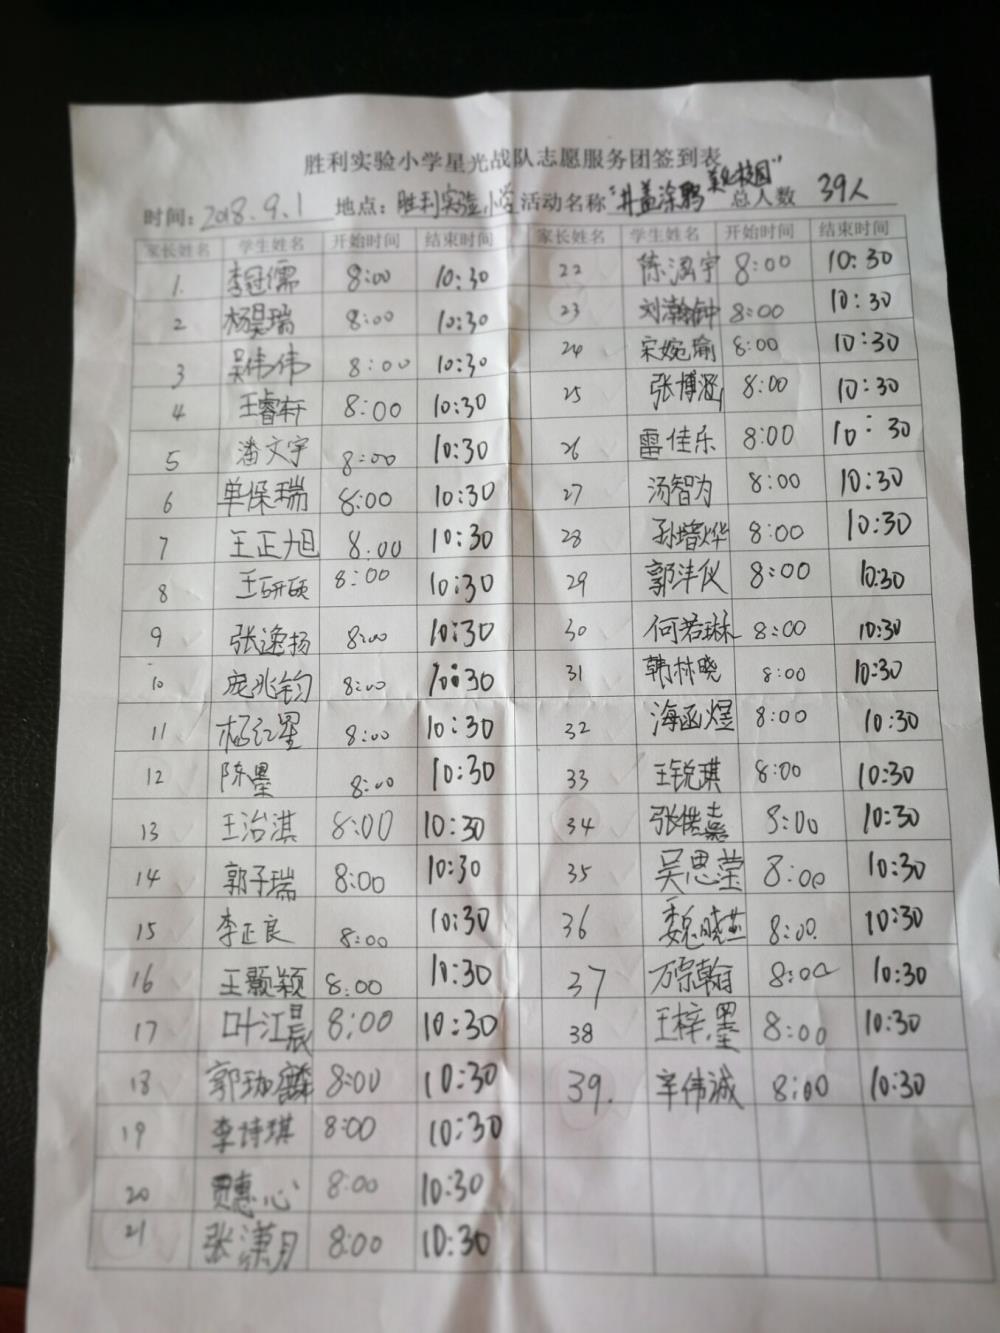 胜利实验小学星光战队志愿服务团签到表
时间：2018.9.1 地点：胜利实验小学 活动名称"井盖涂鸦美化校园" 总人数 39人
家长姓名 学生姓名 开始时间 结束时间 家长姓名 学生姓名 开始时间 结束时间
1. 李冠儒 8:00 10:30 22 陈泓宇 8:00 10:30
2 杨昊瑞 8:00 10:30 23 刘瀚钟 8:00 10:30
3 吴伟伟 8:00 10:30 24 宋婉瑜 8:00 10:30
4 王睿轩 8:00 10:30 25 张博涵 8:00 10:30
5 潘文宇 8:00 10:30 26 雷佳乐 8:00 10:30
6 单保瑞 8:00 10:30 27 汤智为 8:00 10:30
7 王正旭 8:00 10:30 28 孙增烨 8:00 10:30
8 王研硕 8:00 10:30 29 郭沣仪 8:00 10:30
9 张逸扬 8:00 10:30 30 何若琳 8:00 10:30
10 庞兆钧 8:00 10:30 31 韩林晓 8:00 10:30
11 杨红星 8:00 10:30 32 海函煜 8:00 10:30
12 陈墨 8:00 10:30 33 王锐琪 8:00 10:30
13 王治淇 8:00 10:30 34 张 8:00 10:30
14 郭子瑞 8:00 10:30 35 吴思莹 8:00 10:30
15 李正良 8:00 10:30 36 魏晓燕 8:00 10:30
16 王颢颖 8:00 10:30 37 万宗翰 8:00 10:30
17 叶江晨 8:00 10:30 38 王梓墨 8:00 10:30
18 郭珈麟 8:00 10:30 39. 辛伟诚 8:00 10:30
19 李诗琪 8:00 10:30
20 贾惠心 8:00 10:30
21 张潇月 8:00 10:30